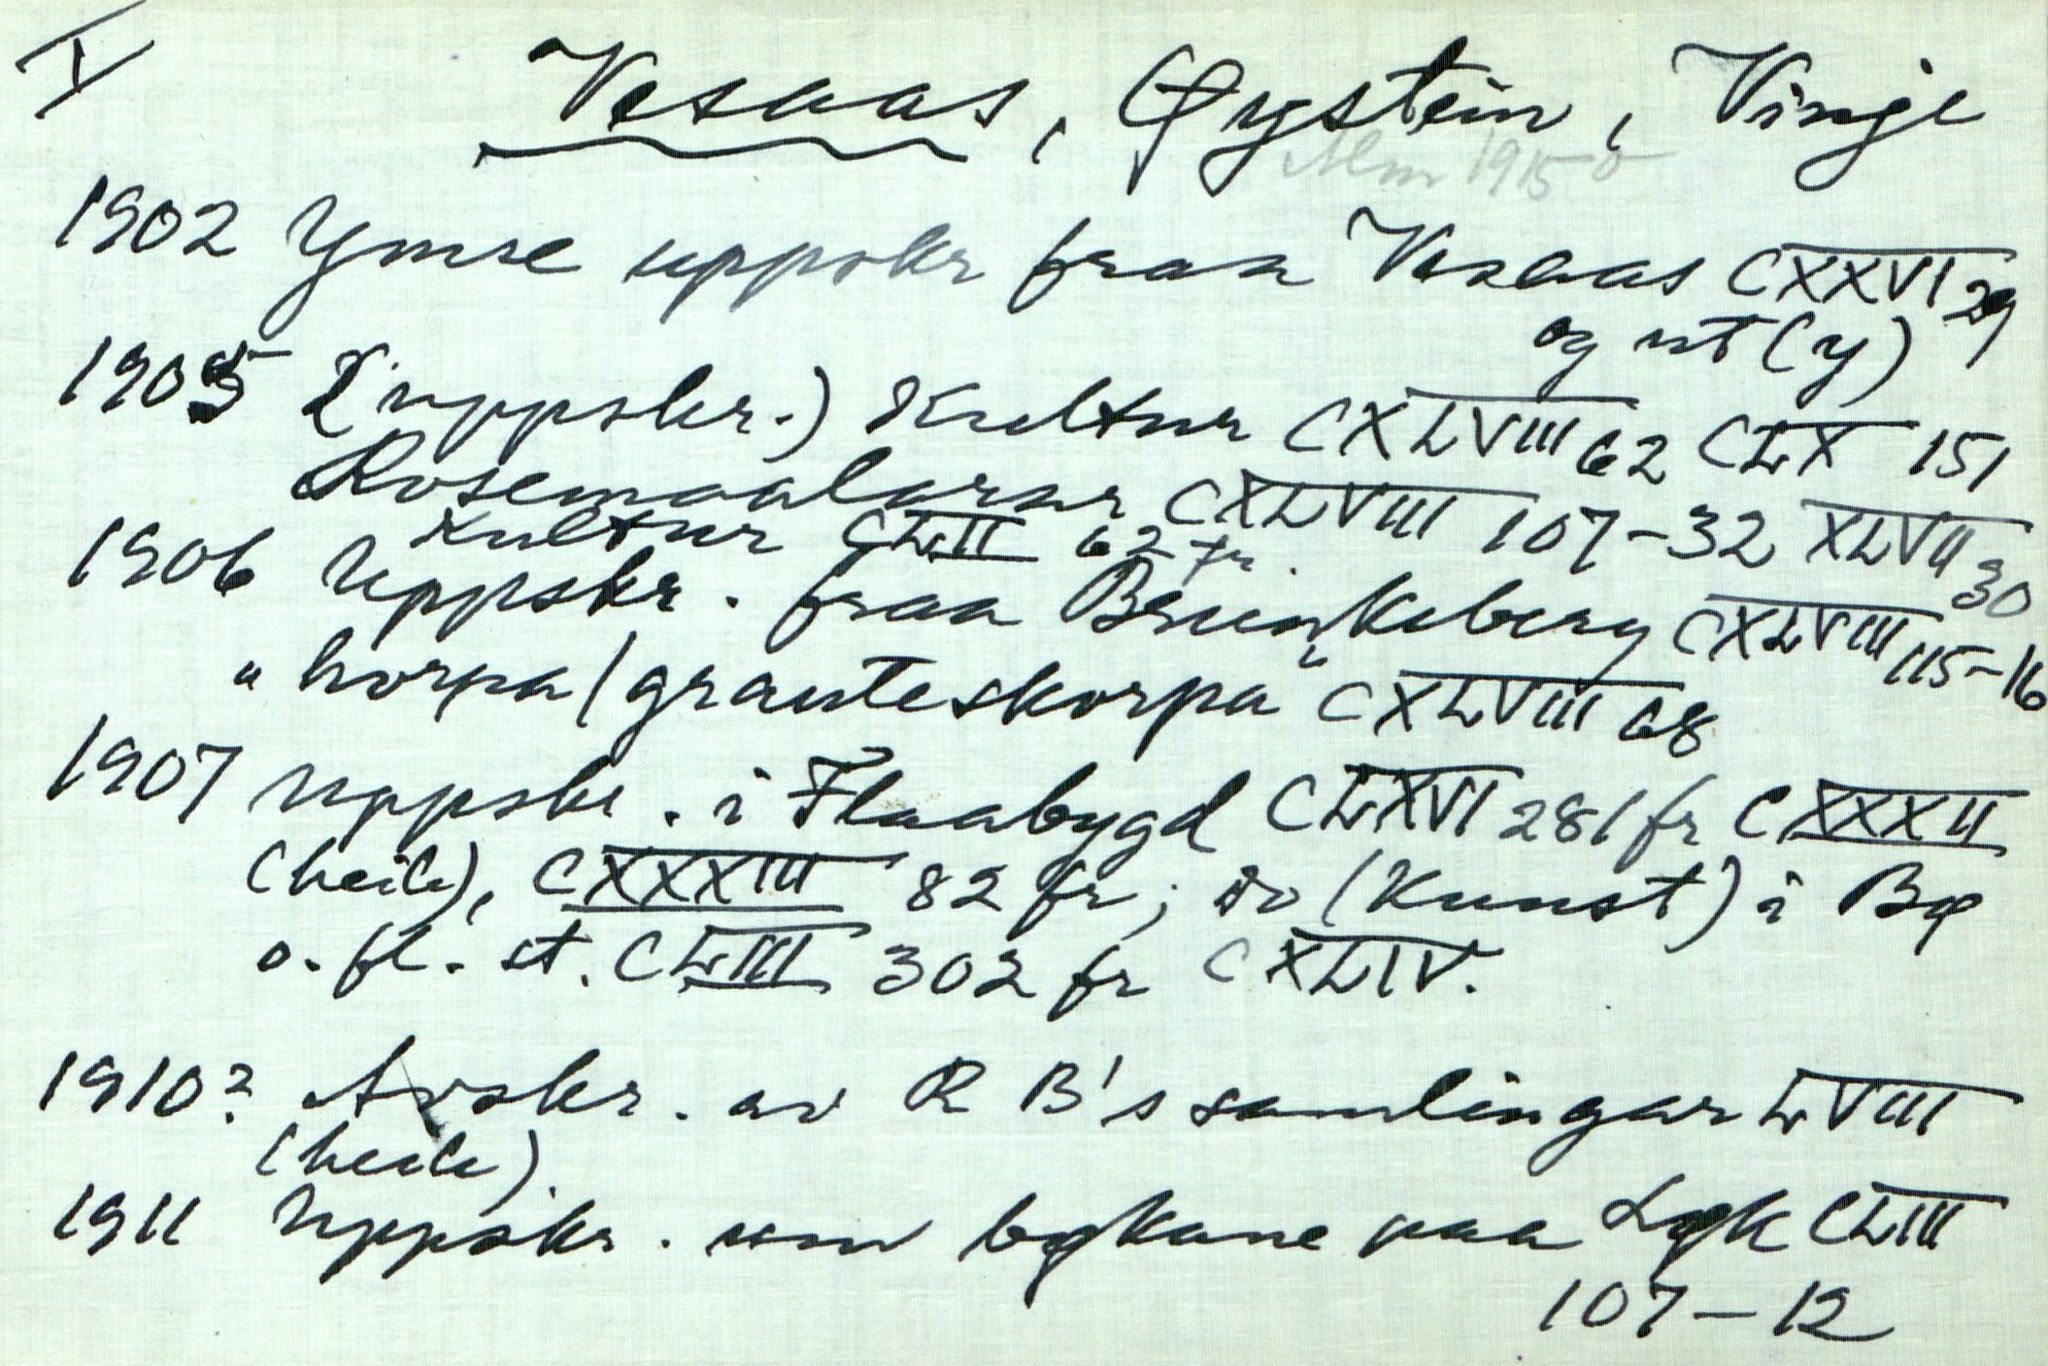 V Vesaas, Øystein, Vinje
1902 Ymse uppskr fraa Vesaas CXXVI 29
og ut (y)
1905 (uppskr.) Kultur CXLVIII 62 CLX 151
Rosemaalarar CXLVIII 107-32 XLVII 30
Kultur CLII 62 fr.
1906 Uppskr. fraa Brunkeberg CXLVIII 115-16
" horpa/grauteskorpa CXLVIII 68
1907 Uppskr. i Flaabygd CLXVI 281 fr CXXXII
(heile), CXXXIII 82 fr; do (Kunst) i Bø
o. fl. st. CLIII 302 fr CXLIV.
1910? Avskr. av R B's samlingar LVIII
(heile).
1911 Uppskr. um bøkane paa Løk CLIII
107-12